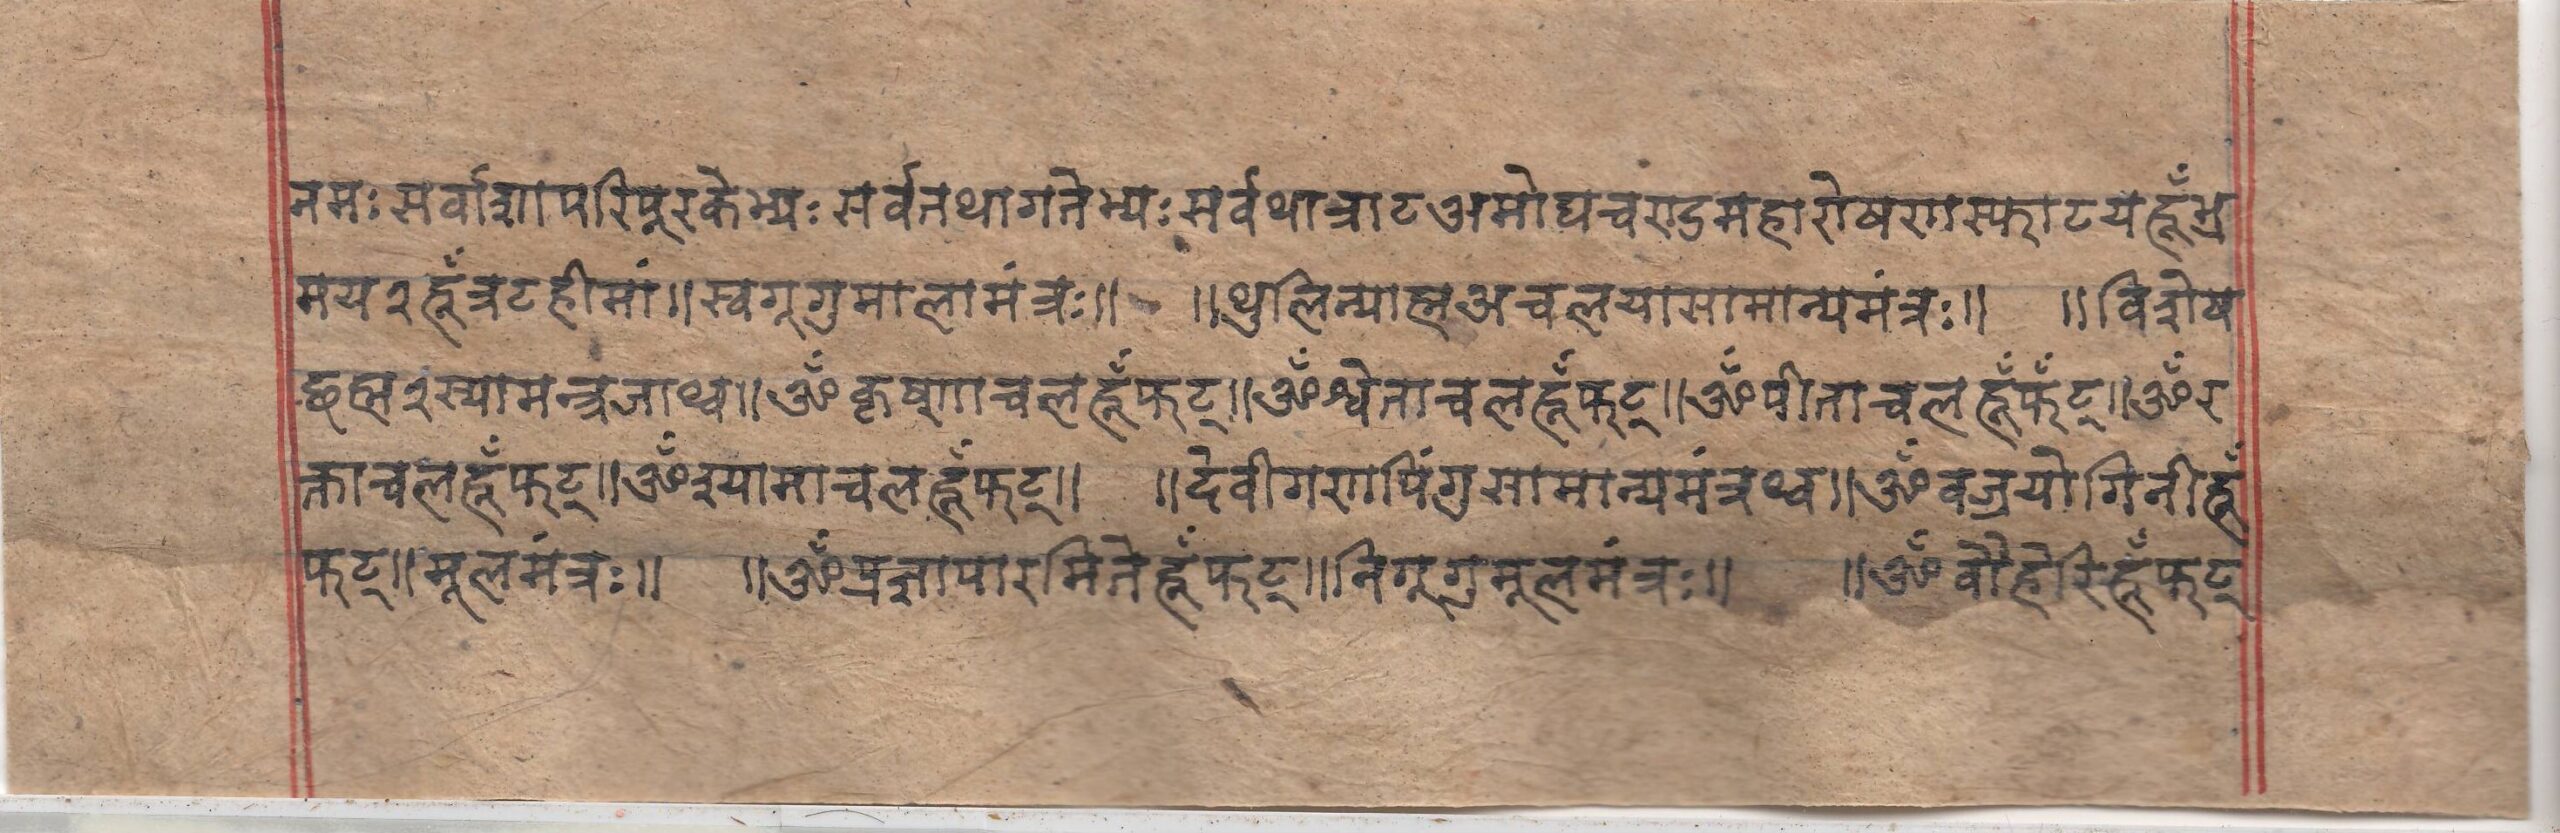 नमः सर्वाशापरिपूरकेभ्यः सर्वतथागतेभ्यः सर्वथात्राट अमोघचण्डमहारोषणस्फाटयहूँभ्र
मय२हूँत्रटहीमां॥स्वगूगुमालामंत्रः॥ ॥थुलिन्याह्मअचलयासामान्यमंत्रः॥ ॥विशेष
ङह्म२स्यामन्त्रजाथ्व॥ॐकृष्णाचलहूँफट्॥ॐश्वेताचलहूँफट्॥ॐपीताचलहूँफँट्॥ॐर
क्ताचलहूँफट्॥ॐश्यामाचलहूँफट्॥ ॥देवीगणपिंगुसामान्यमंत्रथ्व॥ॐवज्रयोगिनीहूँ
फट्॥मूलमंत्रः॥ ॥ॐप्रज्ञापारमितेहूँफट्॥निगूगुमूलमंत्रः॥ ॥ॐवौहेरिहूँफट्